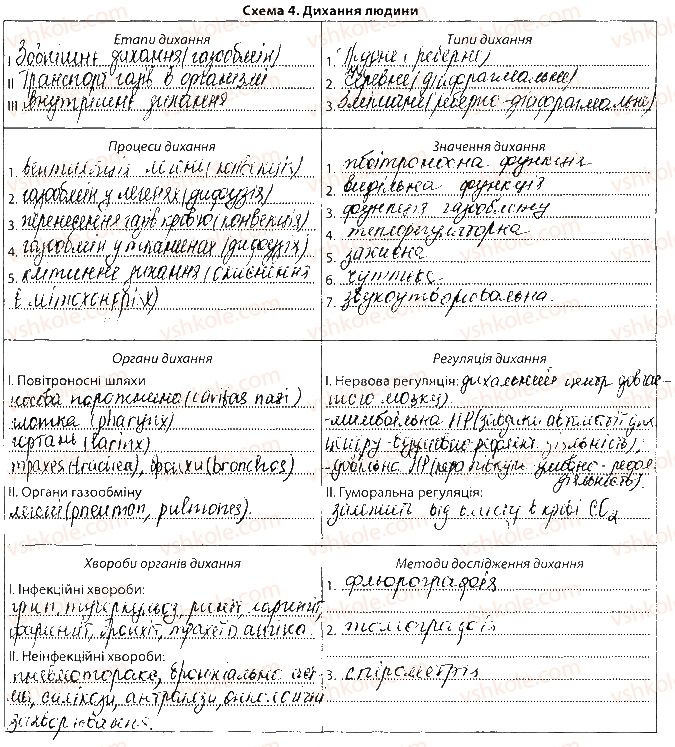 Схема 4. Дихання людини
Етапи дихання
I Зовнішнє дихання (газообмін)
II Транспорт газів в організмі
III внутрішнє дихання
Типи дихання
1. Грудне (реберне)
2. Черевне (діафрагмальне)
3. Змішане (реберно-діафрагмальне)
Процеси дихання
1. вентиляція легень (конвекція)
2. газообмін у легенях (дифузія)
3. перенесення газів кров'ю (конвекція)
4. газообмін у тканинах (дифузія)
5. клітинне дихання (окиснення
в мітохондріях)
Значення дихання
1. повітроносна функція
2. видільна функція
3. функція газообміну
4. терморегуляторна
5. захисна
6. чуттєва
7. звукоутворювальна.
Органи дихання
I. Повітроносні шляхи
носова порожнина (cavitas nasi)
глотка (pharynx)
гортань (larinx)
трахея (trachea), бронхи (bronchos)
II. Органи газообміну
легені (pneumon, pulmones).
Регуляція дихання
I. Нервова регуляція: дихальний центр довгас-
того мозку).
-мимовільна НР (завдяки автоматії дих.
центру - безумовно-рефлект. діяльність),
-довільна НР (кора півкуль умовно-рефл.
діяльність).
II. Гуморальна регуляція:
залежить від вмісту в крові CO2
Хвороби органів дихання
I. Інфекційні хвороби:
грип, туберкульоз, риніт, ларингіт,
фарингіт, бронхіт, трахеїт, ангіна
II. Неінфекційні хвороби:
пневмоторакс, бронхіальна аст-
ма, силікози, антракози, онкологічні
захворювання.
Методи дослідження дихання
1. флюорографія
2. томографія
3. спірометрія
vshkole.com